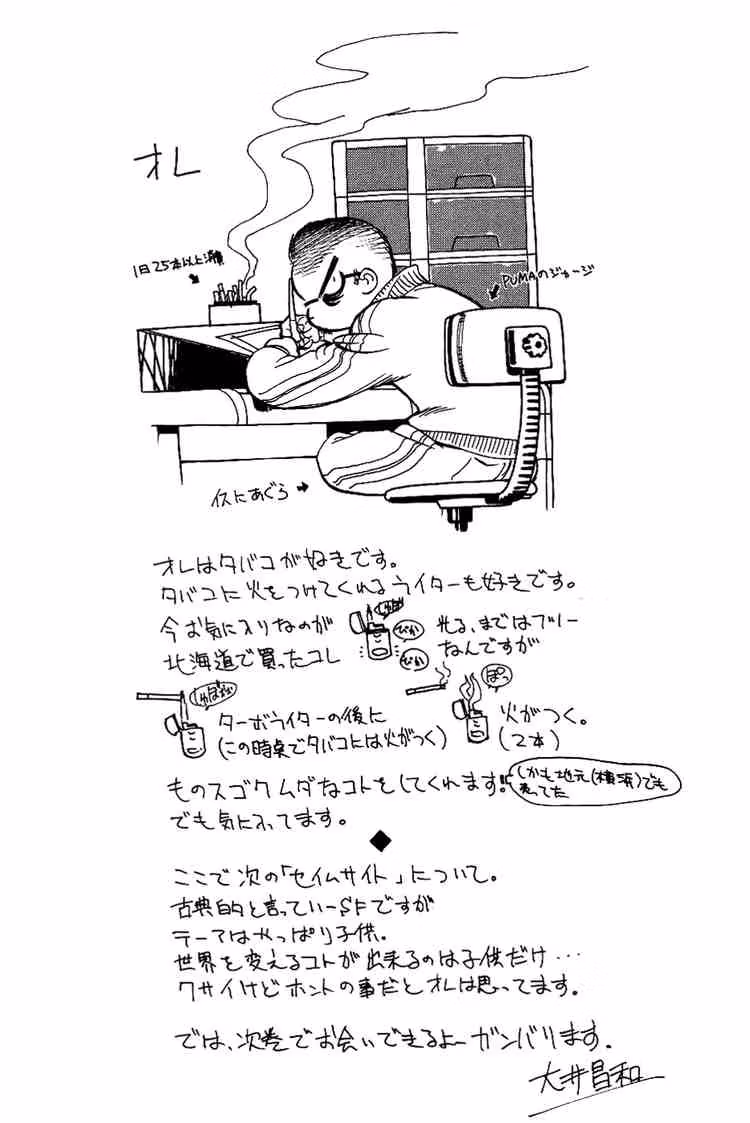 オレ
1日25本以上消費
PUMAのジャージ
イスにあぐら
オレはタバコが好きです。
タバコに火をつけてくれるライターも好きです。
今お気に入りなのが
北海道で買ったコレ
しゅぼ
ぴか
ぴか
光る、まではフツー
なんですが
しゅぼぉぉ
ターボライターの後に
(この時点でタバコには火がつく)
ぽっ
火がつく。
(2本)
ものスゴクムダなコトをしてくれます!
しかも地元(横浜)でも
売ってた
でも気に入ってます。
ここで次の「セイムサイト」について。
古典的と言っていーSFですが
テーマはやっぱり子供。
世界を変えるコトが出来るのは子供だけ…
クサイけどホントの事だとオレは思ってます。
では、次巻でお会いできるよーガンバります。
大井昌和